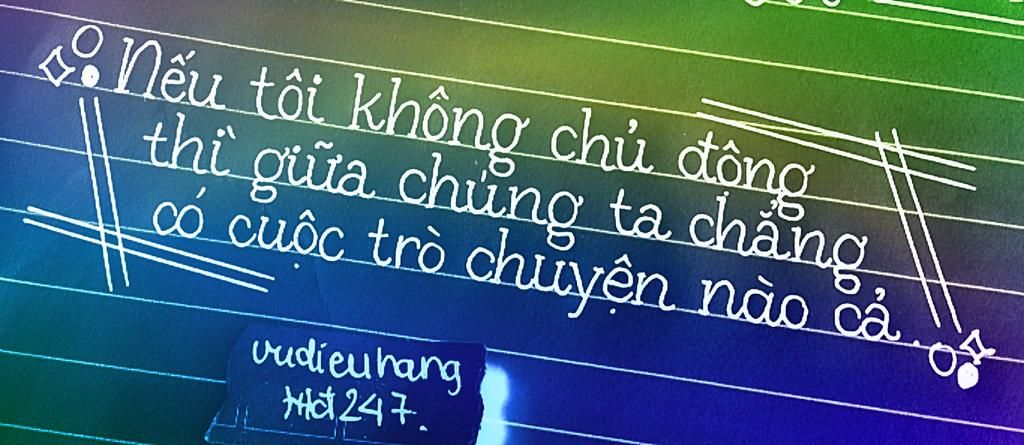 Nếu tôi không chủ động
thì giữa chúng ta chẳng
có cuộc trò chuyện nào cả.
vudieuhang
247.